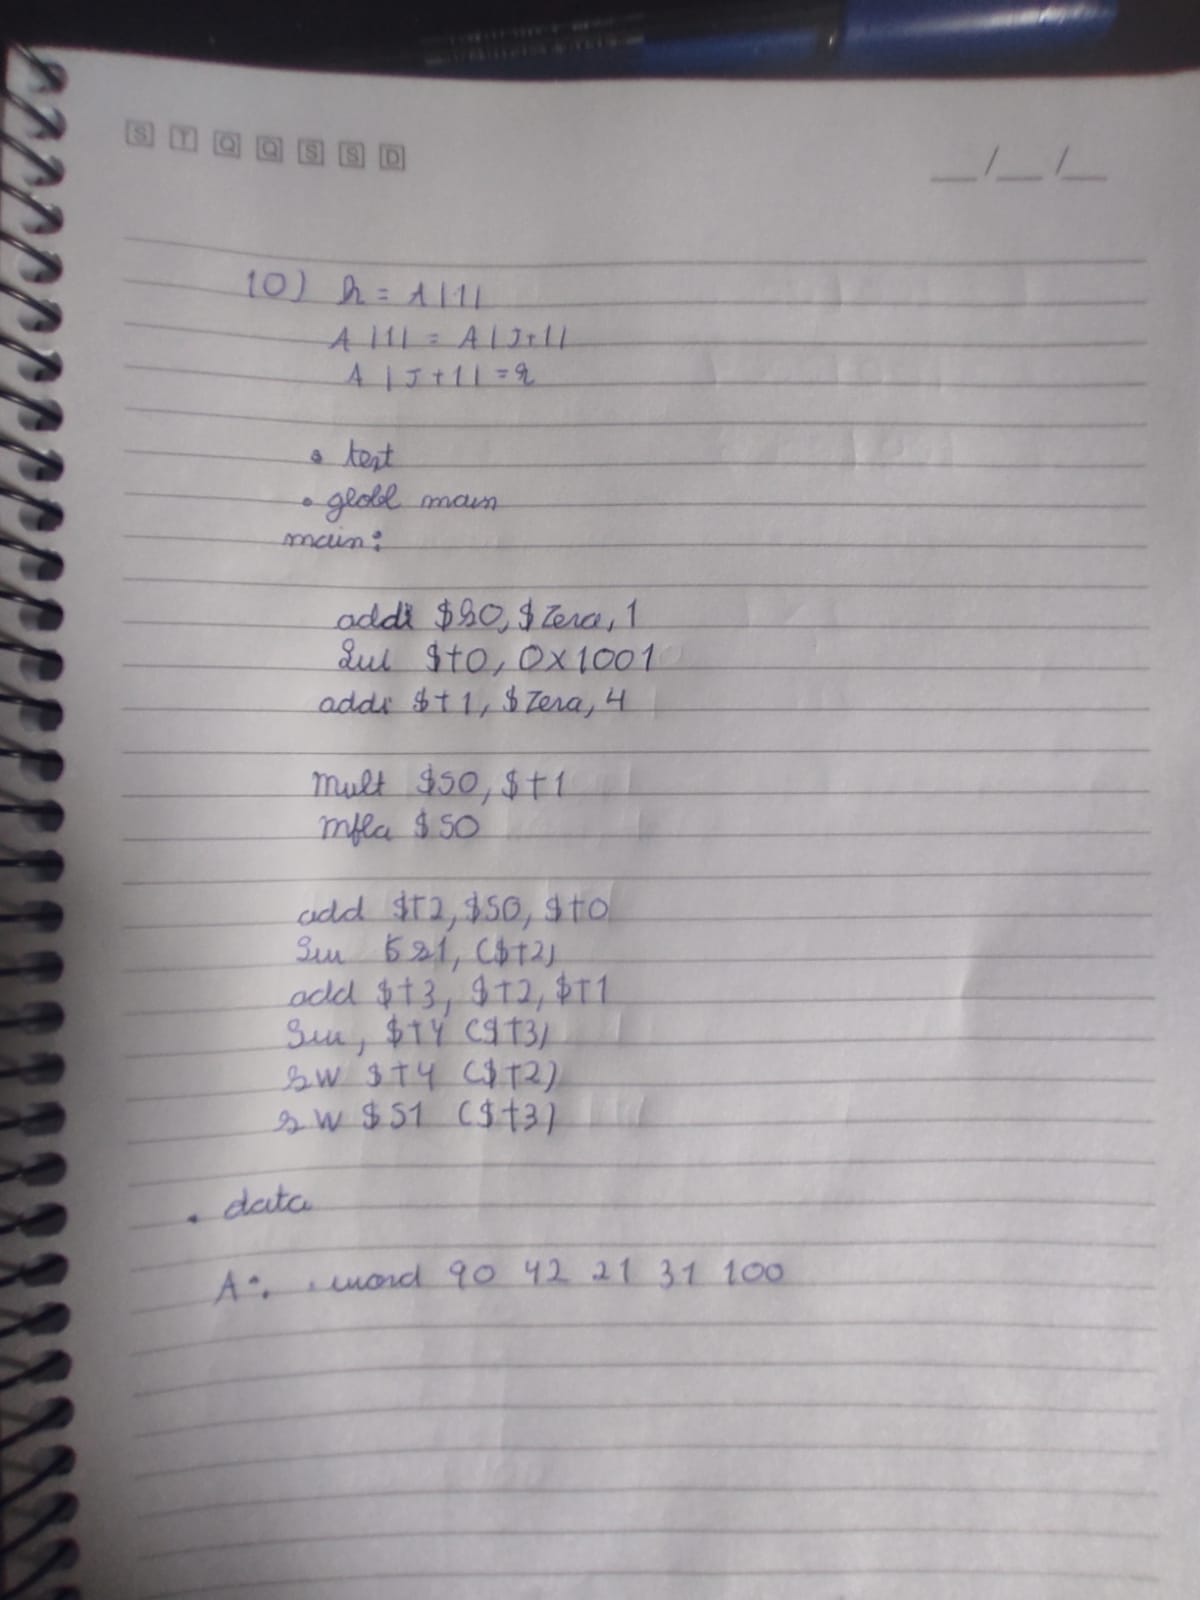 S T Q Q S S D
__/__/__
10) h = A|1|
A |1| = A | J+1|
A | J+1| = h
. text
. globl main
main:
addi $s0, $zero, 1
lui $t0, 0x1001
addi $t1, $zero, 4
mult $s0, $t1
mflo $s0
add $t2, $s0, $t0
lw $s1, ($t2)
add $t3, $t2, $t1
lw, $t4 ($t3)
sw $t4 ($t2)
sw $s1 ($t3)
. data
A: .word 90 42 21 31 100